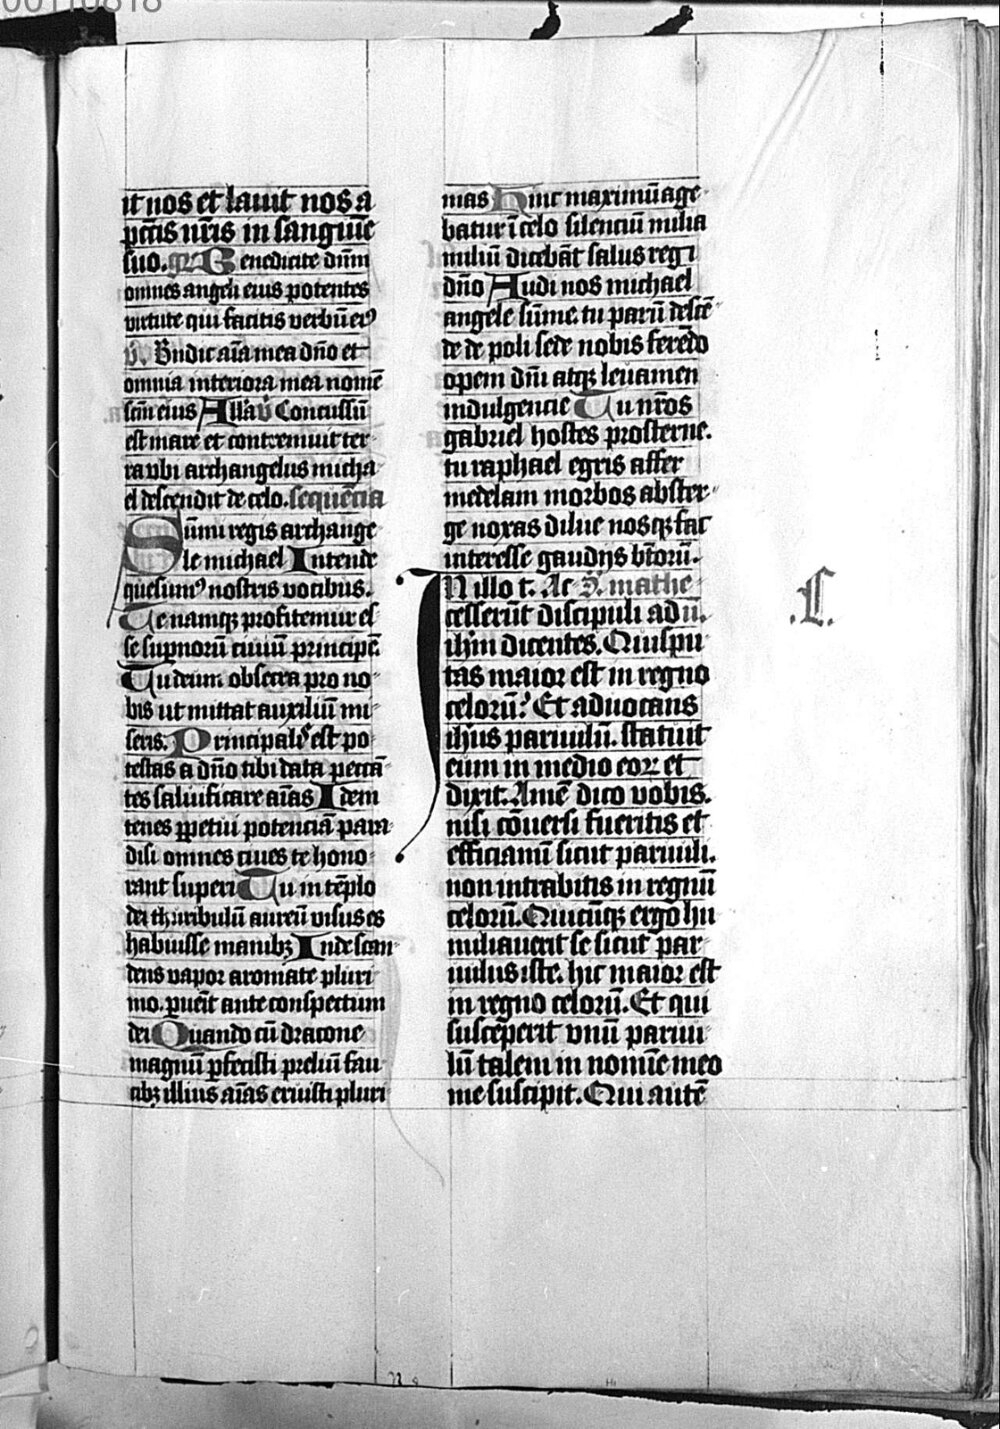 it nos et lauit nos a
pctīs nr̄is in sanguīe
suo. gr̄ Benedicite dn̄m
omnes angeli eius potentes
virtute qui facitis verbū eiꝰ
v̄. Bn̄dic aīa mea dn̄o et
omnia interiora mea nomē
scm̄ eius All̄a v̄ Concussū
est mare et contremuit ter
ra vbi archangelus micha
el descendit de celo. sequēcia
Sūmi regis archange
le michael Intende
quesumꝰ nostris vocibus.
Te namqꝫ profitemur es
se supnorū ciuiū principē.
Tu deum obsecra pro no
bis ut mittat auxiliū mi
seris. Principalꝰ est po
testas a dn̄o tibi data peccā
tes saluificare aīas Idem
tenes ꝑpetui potenciā para
disi omnes ciues te hono
rant superi Tu in tēplo
dei thuribulū aureū visus es
habuisse manibꝫ Inde scan
dens vapor aromate pluri
mo. puēit ante conspectum
dei Quando cū dracone
magnū pfecisti preliū fau
cibꝫ illius aīas eruisti pluri
mas Hinc maximū age
batur ī celo silenciū milia
miliū dicebāt salus regi
dn̄o Audi nos michael
angele sūme. tu parū descē
de de poli sede nobis ferēdo
opem dn̄i atqꝫ leuamen
indulgencie Tu nr̄os
gabriel hostes prosterne.
tu raphael egris affer
medelam morbos abster
ge noxas dilue nosqꝫ fac
interesse gaudijs bt̄orū.
In illo t. Ac S. mathe
cesserūt discipuli ad ū.
ihm̄ dicentes. Quis pu
tas maior est in regno
celorū? Et aduocans
ihūs paruulū. statuit
eum in medio eoꝝ et
dixit. Amē dico vobis.
nisi cōuersi fueritis et
efficiamī sicut paruuli.
non intrabitis in regnū
celorū. Quicūqꝫ ergo hu
miliauerit se sicut par
uulus iste. hic maior est
in regno celorū. Et qui
susceperit vnū paruu
lū talem in nomīe meo
me suscipit. Qui autē